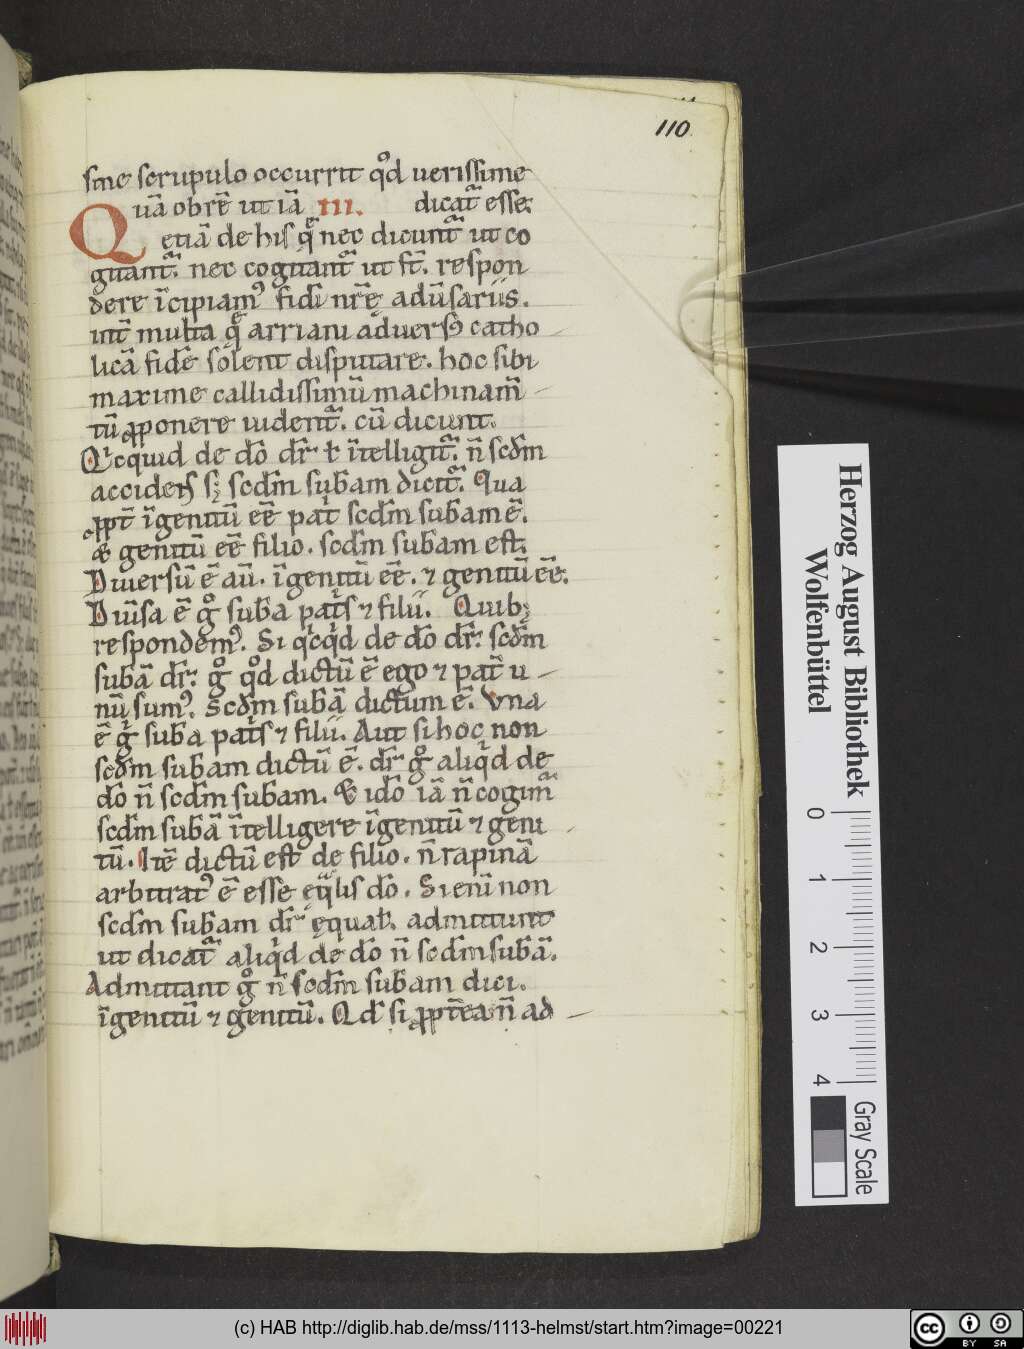 110
sine scrupulo occurrit qd̊ uerissime
Quā obrē ut iā III. dicat᷑ esse.
etiā de his q̄ nec dicunt᷑ ut co
gitant᷑. nec cogitant᷑ ut st̄. respon
dere īcipiam᷒ fidei nr̄ę aduSariis.
int̄ multa q̄ arriani aduers᷒ catho
licā fidē solent disputare. hoc sibi
maxime callidissimū machinam̄
tū ꝓponere uident᷑. cū dicunt.
Qicquid de dō dr̄ ł ītelligit᷑. n̄ scdm̄
accidens sꝫ scdm̄ sub̄am dicit᷑. Qua
ꝓpt̄ īgenitū eē pat̄ scdm̄ sub̄am ē.
& genitū eē filio. scdm̄ sub̄am est.
Diuersū ē aū. īgenitū eē. ⁊ genitū eē.
Diūsa ē gͦ sub̄a pat̄s ⁊ filii. Quibꝫ
respondem᷒. Si qicqd de dō dr̄. scdm̄
sub̄ā dr̄. gͦ qd̊ dictū ē ego ⁊ pat̄ u
nū sum᷒. Scdm̄ sub̄ā dictum ē. Vna
ē gͦ sub̄a pat̄s ⁊ filii. Aut si hoc non
scdm̄ sub̄am dictū ē. dr̄ gͦ aliqd de
dō n̄ scdm̄ sub̄am. & idō iā n̄ cogim᷑
scdm̄ sub̄ā ītelligere īgenitū ⁊ geni
tū. Itē dictū est de filio. n̄ rapinā
arbitrat᷒ ē esse eq̄lis dō. Si enī non
scdm̄ sub̄am dr̄ ęqual̄. admittunt
ut dicat᷑ aliqd de dō n̄ scdm̄ sub̄ā.
Admittant gͦ n̄ scdm̄ sub̄am dici.
īgenitū ⁊ genitū. Qd̄ si ꝓpt̄ea n̄ ad
Herzog August Bibliothek
Wolfenbüttel
0 1 2 3 4
Gray Scale
(c) HAB http://diglib.hab.de/mss/1113-helmst/start.htm?image=00221
cc BY SA